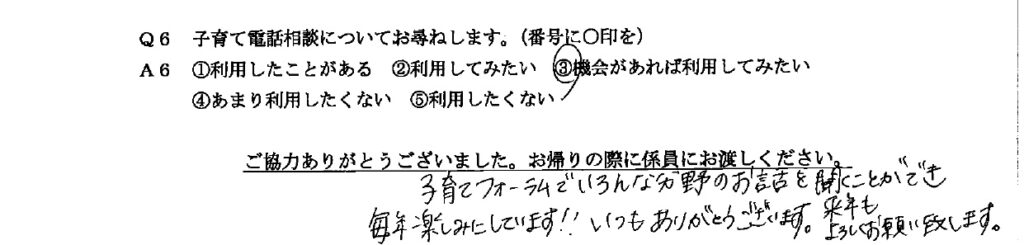 Q6 子育て電話相談についてお尋ねします。(番号に○印を)
A6 ①利用したことがある ②利用してみたい ③機会があれば利用してみたい
④あまり利用したくない ⑤利用したくない
ご協力ありがとうございました。お帰りの際に係員にお渡しください。
子育てフォーラムでいろんな分野のお話を聞くことができ
毎年楽しみにしています!! いつもありがとうございます。来年も
よろしくお願い致します。